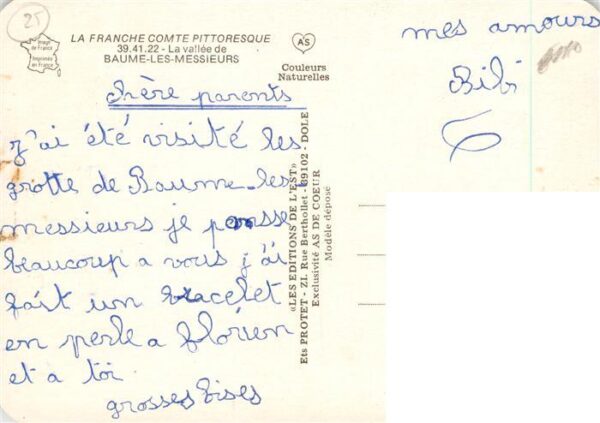 25
Image de France
Imprimée en France
LA FRANCHE COMTE PITTORESQUE
39.41.22 - La vallée de
BAUME-LES-MESSIEURS
AS
Couleurs
Naturelles
chère parents
j'ai été visité les
grotte de Baume-les-
messieurs je pensse
beaucoup a vous j'ai
fait un bracelet
en perle a florien
et a toi
grosses bises
mes amours
Bibi
«LES EDITIONS DE L'EST»
Ets PROTET - Z.I. Rue Berthollet - 39102 - DOLE
Exclusivité AS DE COEUR
Modèle déposé